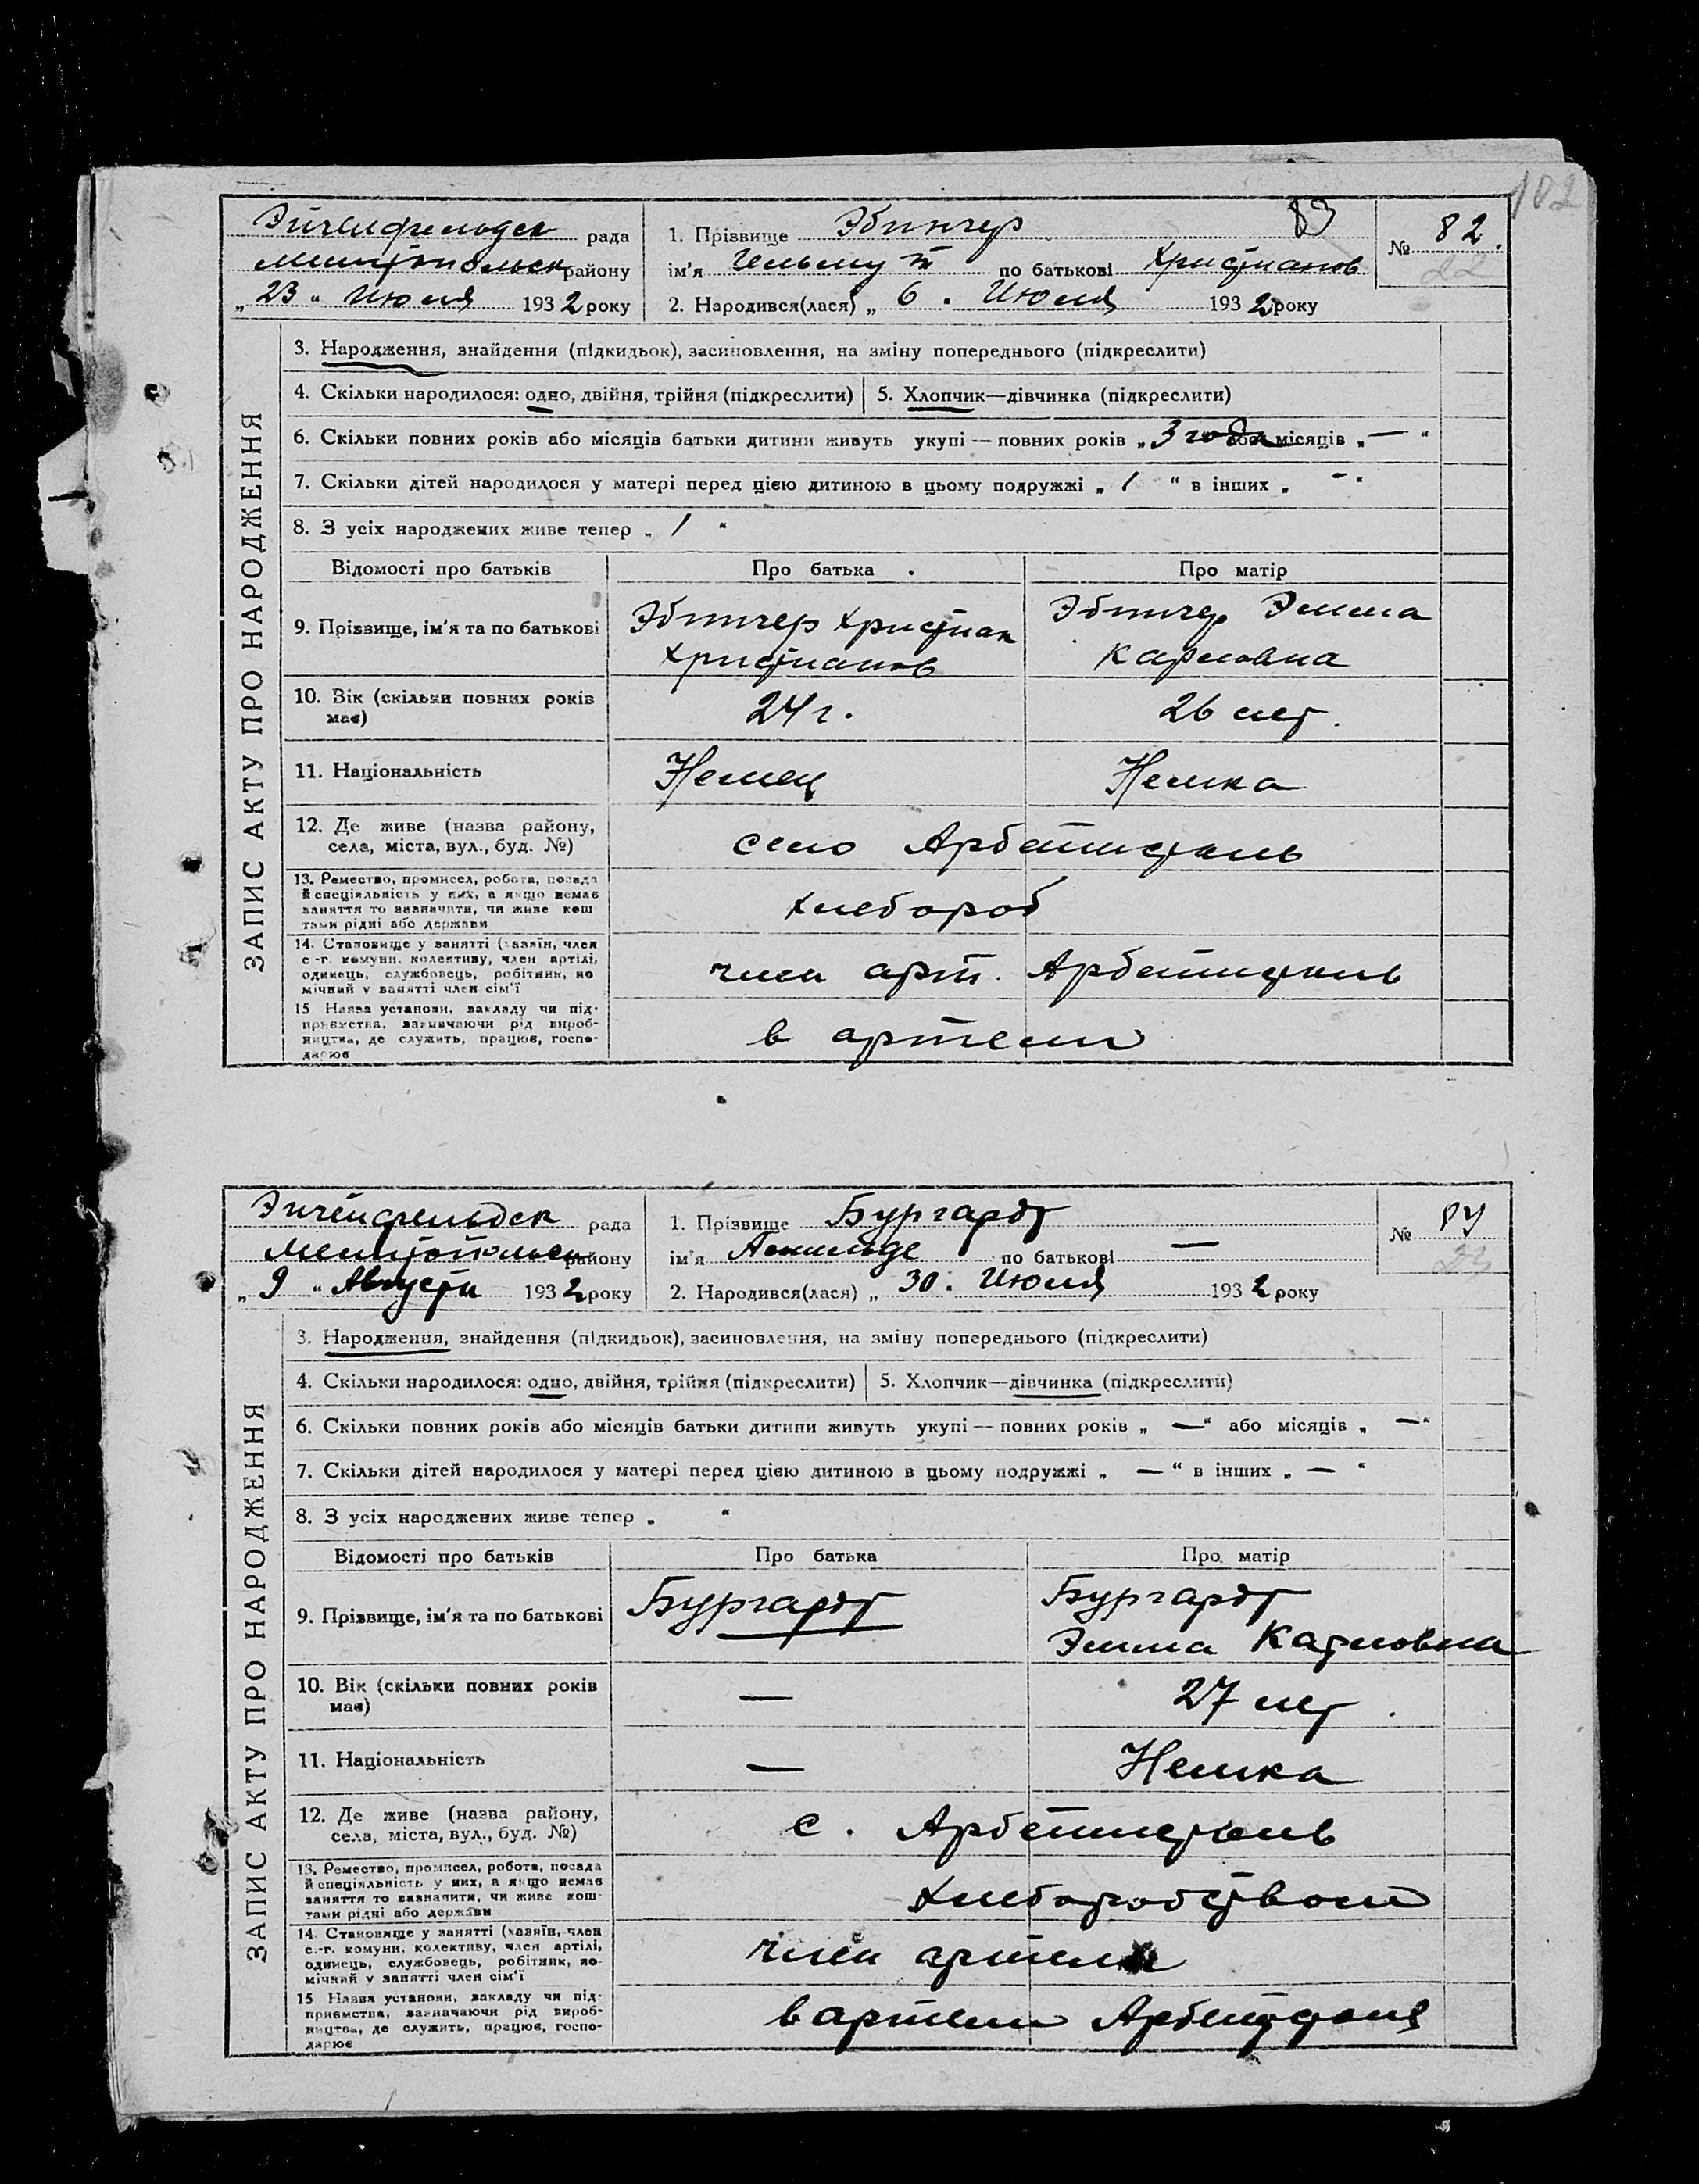 102
Эйгенфельдск рада
Мелитопольск району
„ 23 “ Июля 1932 року
1. Прізвище Эбингер 83
ім'я Гельмут по батькові Христианов
2. Народився(лася) „ 6 . Июля 1932 року
№ 82.
22
ЗАПИС АКТУ ПРО НАРОДЖЕННЯ
3. Народження, знайдення (підкидьок), засиновлення, на зміну попереднього (підкреслити)
4. Скільки народилося: одно, двійня, трійня (підкреслити)
5. Хлопчик—дівчинка (підкреслити)
6. Скільки повних років або місяців батьки дитини живуть укупі — повних років „ 3 года або місяців „ — “
7. Скільки дітей народилося у матері перед цією дитиною в цьому подружжі „ 1 “ в інших „ - “
8. З усіх народжених живе тепер „ 1 “
Відомості про батьків Про батька Про матір
9. Прізвище, ім'я та по батькові
Эбингер Христиан
Христианов
Эбингер Эмма
Карловна
10. Вік (скільки повних років
має)
24 г. 26 лет.
11. Національність Немец Немка
12. Де живе (назва району,
села, міста, вул., буд. №)
село Арбейтсталь
13. Ремество, промисел, робота, посада
й спеціяльність у них, а якщо немає
заняття то зазначити, чи живе кош
тами рідні або держави
хлебороб
14. Становище у занятті (хазяїн, член
с.-г. комуни, колективу, член артілі,
одинець, службовець, робітник, по
мічний у занятті член сім'ї
член арт. Арбейтсталь
15 Назва установи, закладу чи під-
приємства, зазначаючи рід вироб-
ництва, де служить, працює, госпо-
дарює
в артели
Эйгенфельдск рада
Мелитопольск району
„ 9 “ Августа 1932 року
1. Прізвище Бургардт
ім'я по батькові —
2. Народився(лася) „ 30 . Июля 1932 року
№
23
ЗАПИС АКТУ ПРО НАРОДЖЕННЯ
3. Народження, знайдення (підкидьок), засиновлення, на зміну попереднього (підкреслити)
4. Скільки народилося: одно, двійня, трійня (підкреслити)
5. Хлопчик—дівчинка (підкреслити)
6. Скільки повних років або місяців батьки дитини живуть укупі — повних років „ — “ або місяців „ — “
7. Скільки дітей народилося у матері перед цією дитиною в цьому подружжі „ — “ в інших „ — “
8. З усіх народжених живе тепер „ “
Відомості про батьків Про батька Про матір
9. Прізвище, ім'я та по батькові
Бургардт
Бургардт
Эмма Карловна
10. Вік (скільки повних років
має)
— 27 лет.
11. Національність — Немка
12. Де живе (назва району,
села, міста, вул., буд. №)
с. Арбейтсталь
13. Ремество, промисел, робота, посада
й спеціяльність у них, а якщо немає
заняття то зазначити, чи живе кош-
тами рідні або держави
хлеборобством
14. Становище у занятті (хазяїн, член
с.-г. комуни, колективу, член артілі,
одинець, службовець, робітник, по-
мічний у занятті член сім'ї
член артели
15 Назва установи, закладу чи під-
приємства, зазначаючи рід вироб-
ництва, де служить, працює, госпо-
дарює
в артели